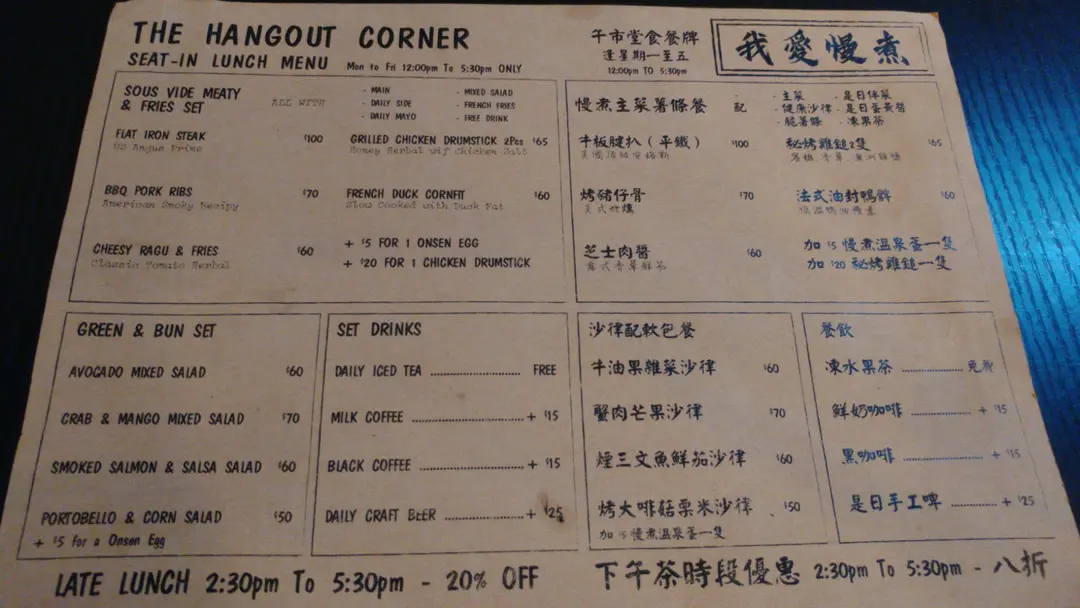 THE HANGOUT CORNER
SEAT-IN LUNCH MENU Mon to Fri 12:00pm To 5:30pm ONLY
午市堂食餐牌
逢星期一至五
12:00pm TO 5:30pm
我愛慢煮
SOUS VIDE MEATY
& FRIES SET
ALL WITH
- MAIN
- DAILY SIDE
- DAILY MAYO
- MIXED SALAD
- FRENCH FRIES
- FREE DRINK
FLAT IRON STEAK $100
US Angus Prime
GRILLED CHICKEN DRUMSTICK 2Pcs $65
Honey Herbal wif Chicken Salt
BBQ PORK RIBS $70
American Smoky Recipy
FRENCH DUCK CORNFIT $60
Slow Cooked with Duck Fat
CHEESY RAGU & FRIES $60
Classic Tomato Herbal
+ $5 FOR 1 ONSEN EGG
+ $20 FOR 1 CHICKEN DRUMSTICK
慢煮主菜薯條餐 配
- 主菜 - 是日伴菜
- 健康沙律 - 是日蛋黃醬
- 脆薯條 - 凍果茶
牛板腱扒（平鐵） $100
美國頂級安格斯
秘烤雞鎚2隻 $65
烤豬仔骨 $70
美式好燻
法式油封鴨髀 $60
芝士肉醬 $60
意式香草鮮茄
加 $5 慢煮溫泉蛋一隻
加 $20 秘烤雞鎚一隻
GREEN & BUN SET
AVOCADO MIXED SALAD $60
CRAB & MANGO MIXED SALAD $70
SMOKED SALMON & SALSA SALAD $60
PORTOBELLO & CORN SALAD $50
+ $5 For a Onsen Egg
SET DRINKS
DAILY ICED TEA ........................ FREE
MILK COFFEE ........................ + $15
BLACK COFFEE ........................ + $15
DAILY CRAFT BEER ........................ + $25
沙律配軟包餐
牛油果雜菜沙律 $60
蟹肉芒果沙律 $70
煙三文魚鮮茄沙律 $60
烤大啡菇粟米沙律 $50
加 $5 慢煮溫泉蛋一隻
餐飲
凍水果茶 ............ 免費
鮮奶咖啡 ............ + $15
黑咖啡 ............ + $15
是日手工啤 ............ + $25
LATE LUNCH 2:30pm To 5:30pm - 20% OFF
下午茶時段優惠 2:30pm To 5:30pm - 八折